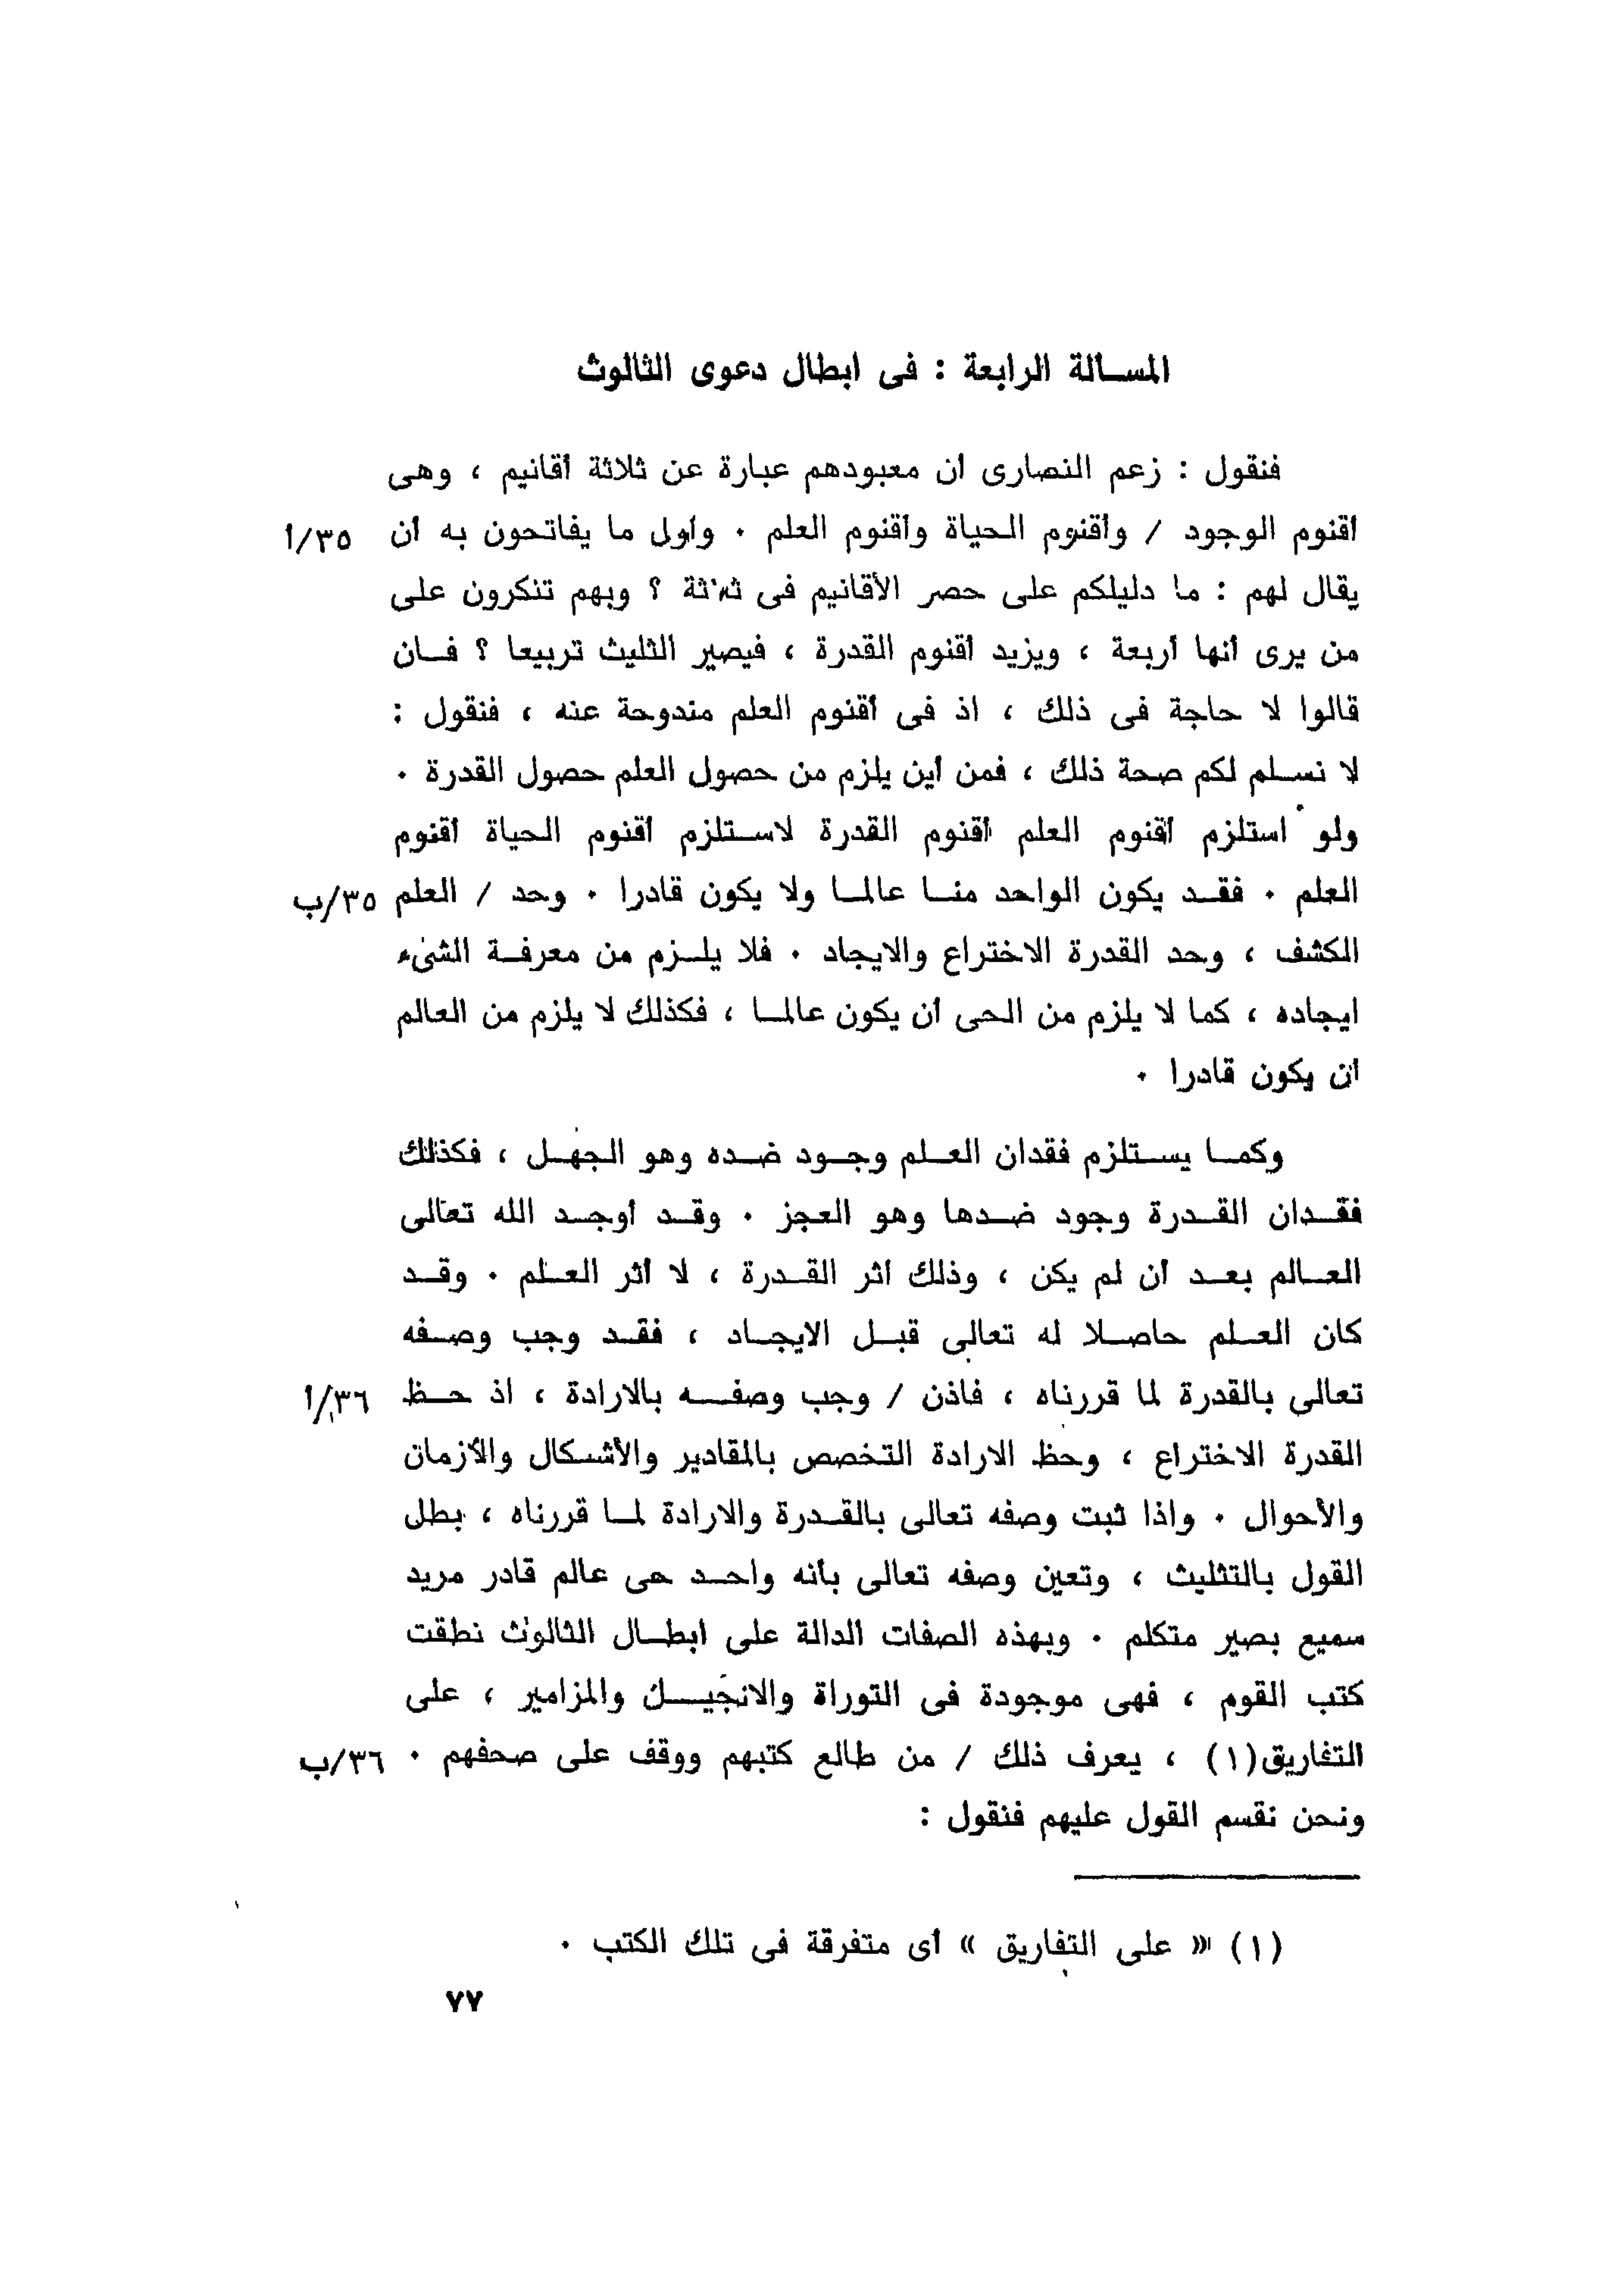 المسألة الرابعة : فى ابطال دعوى الثالوث
فنقول : زعم النصارى أن معبودهم عبارة عن ثلاثة أقانيم ، وهى
أقنوم الوجود / وأقنوم الحياة وأقنوم العلم ٠ وأول ما يفاتحون به أن ٣٥/أ
يقال لهم : ما دليلكم على حصر الأقانيم فى ثلاثة ؟ وبهم تنكرون على
من يرى أنها أربعة ، ويزيد أقنوم القدرة ، فيصير الثليث تربيعا ؟ فـان
قالوا لا حاجة فى ذلك ، اذ فى أقنوم العلم مندوحة عنه ، فنقول :
لا نسـلم لكم صحة ذلك ، فمن أين يلزم من حصول العلم حصول القدرة ٠
ولو استلزم أقنوم العلم أقنوم القدرة لاسـتلزم أقنوم الحياة أقنوم
العلم ٠ فقـد يكون الواحد منـا عالمـا ولا يكون قادرا ٠ وحد / العلم ٣٥/ب
الكشف ، وحد القدرة الاختراع والايجاد ٠ فلا يلـزم من معرفـة الشىء
ايجاده ، كما لا يلزم من الحى أن يكون عالمـا ، فكذلك لا يلزم من العالم
أن يكون قادرا ٠
وكمـا يسـتلزم فقدان العـلم وجـود ضـده وهو الجهـل ، فكذلك
فقـدان القـدرة وجود ضـدها وهو العجز ٠ وقـد أوجـد الله تعالى
العـالم بعـد أن لم يكن ، وذلك أثر القـدرة ، لا أثر العـلم ٠ وقـد
كان العـلم حاصـلا له تعالى قبـل الايجـاد ، فقـد وجب وصـفه
تعالى بالقدرة لما قررناه ، فاذن / وجب وصفـــه بالارادة ، اذ حـــظ ٣٦/أ
القدرة الاختراع ، وحظ الارادة التخصص بالمقادير والأشـكال والأزمان
والأحوال ٠ واذا ثبت وصفه تعالى بالقـدرة والارادة لمـا قررناه ، بطل
القول بالتثليث ، وتعين وصفه تعالى بأنه واحـد حى عالم قادر مريد
سميع بصير متكلم ٠ وبهذه الصفات الدالة على ابطـال الثالوث نطقت
كتب القوم ، فهى موجودة فى التوراة والانجيـــل والمزامير ، على
التفاريق(١) ، يعرف ذلك / من طالع كتبهم ووقف على صحفهم ٠ ٣٦/ب
ونحن نقسم القول عليهم فنقول :
(١) « على التفاريق » أى متفرقة فى تلك الكتب ٠
٧٧